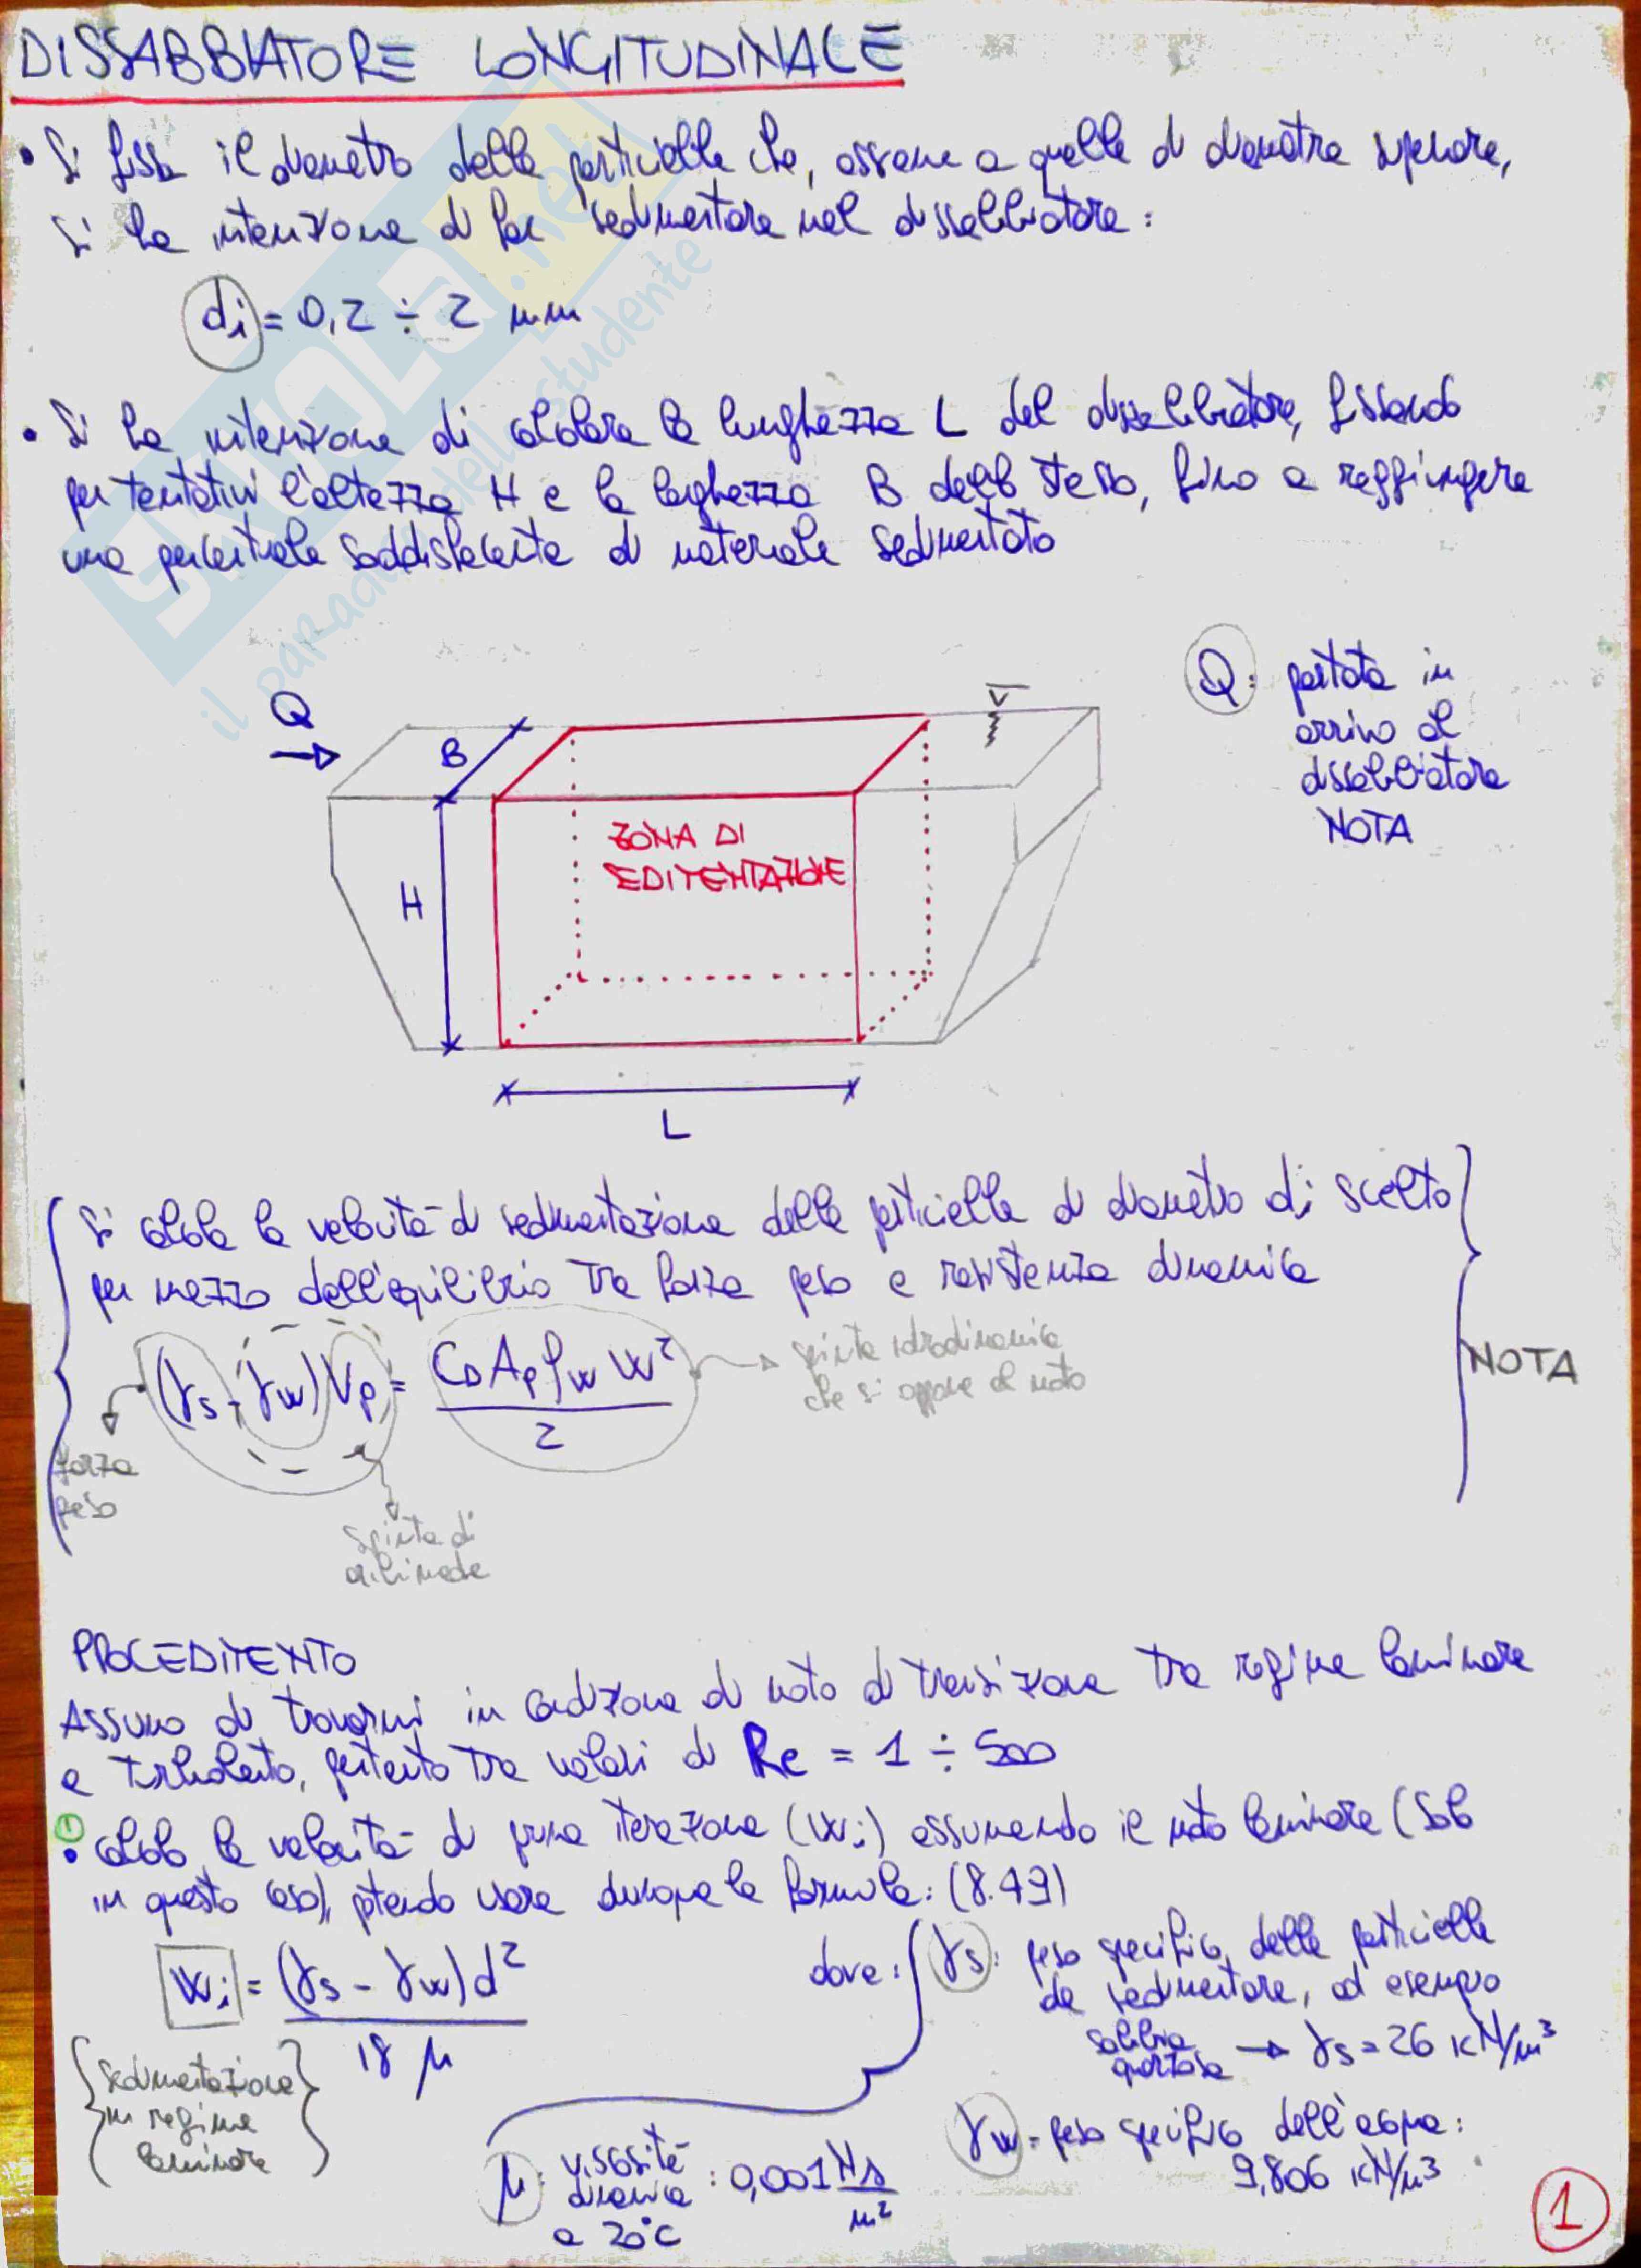 DISSABBIATORE LONGITUDINALE
• Si fissa il diametro delle particielle che, assieme a quelle di diametro superiore,
si ha intenzione di far sedimentare nel dissabbiatore:
di = 0,2 ÷ 2 mm
• Si ha intenzione di calcolare la lunghezza L del dissabbiatore, fissando
per tentativi l'altezza H e la larghezza B dello stesso, fino a raggiungere
una percentuale soddisfacente di materiale sedimentato
Q
B
H
ZONA DI
SEDIMENTAZIONE
V
L
Q: portata in
arrivo al
dissabbiatore
NOTA
Si calcola la velocità di sedimentazione delle particielle di diametro di scelto
per mezzo dell'equilibrio tra forza peso e resistenza dinamica
(γs - γw) Vp = CD Ap ρw w² / 2
spinta idrodinamica
che si oppone al moto
NOTA
forza
peso
spinta di
archimede
PROCEDIMENTO
Assumo di trovarmi in condizione di moto di transizione tra regime laminare
e turbolento, pertanto tra valori di Re = 1 ÷ 500
① • Calcolo la velocità di prima iterazione (wi) assumendo il moto laminare (solo
in questo caso), potendo usare dunque la formula: (8.49)
wi = (γs - γw) d² / 18 μ
{sedimentazione
in regime
laminare}
dove: γs: peso specifico delle particielle
da sedimentare, ad esempio
sabbia
quarzosa → γs = 26 kN/m³
γw = peso specifico dell'acqua:
9,806 kN/m³
μ: viscosità
dinamica
a 20°C : 0,001 Ns/m²
1
SKUOLA.net
il paradiso dello studente